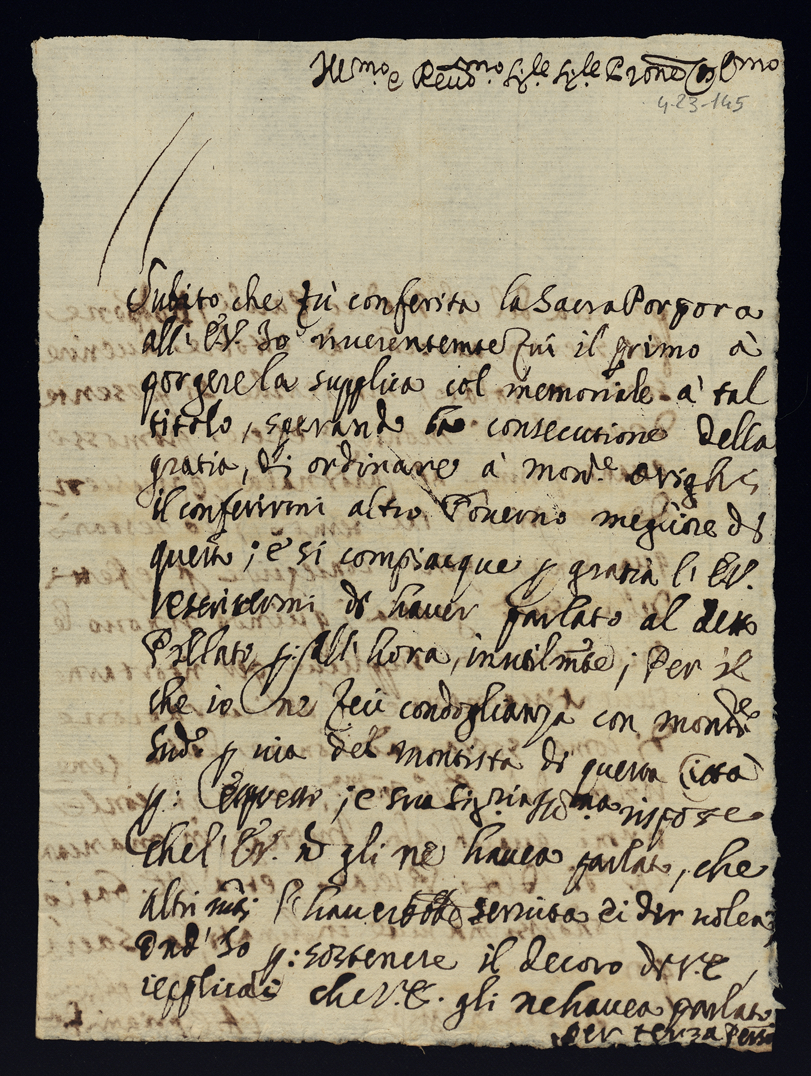 Ill.mo e Reu.mo Sig.re Sig.re Prone Col.mo
4-23-145
Subito che fu conferita la Sacra Porpora
all' E.V. Io riuerentemte fui il primo à
porgere la supplica col memoriale à tal
titolo, sperando la consecutione della
gratia, di ordinare à Mons.re Orighi
il conferirmi altro Gouerno megliore di
questo; e si compiacque p gratia l' E.V.
rescriuermi di hauer parlato al detto
Prellato p: all' hora, inutilmte; Per il
che io ne feci condoglianza con mons.re
Sud.o p uia del montista di questa Città
p: espresso; e sua Sig.ria Ill.ma rispose
che l' E.V. no gli ne hauea parlato, che
altrimti l' hauerebbe seruita di bon uolere
Ond' Io p: sostenere il decoro di V.E.
replicai che V.E. gli ne hauea parlato
per terza Perso